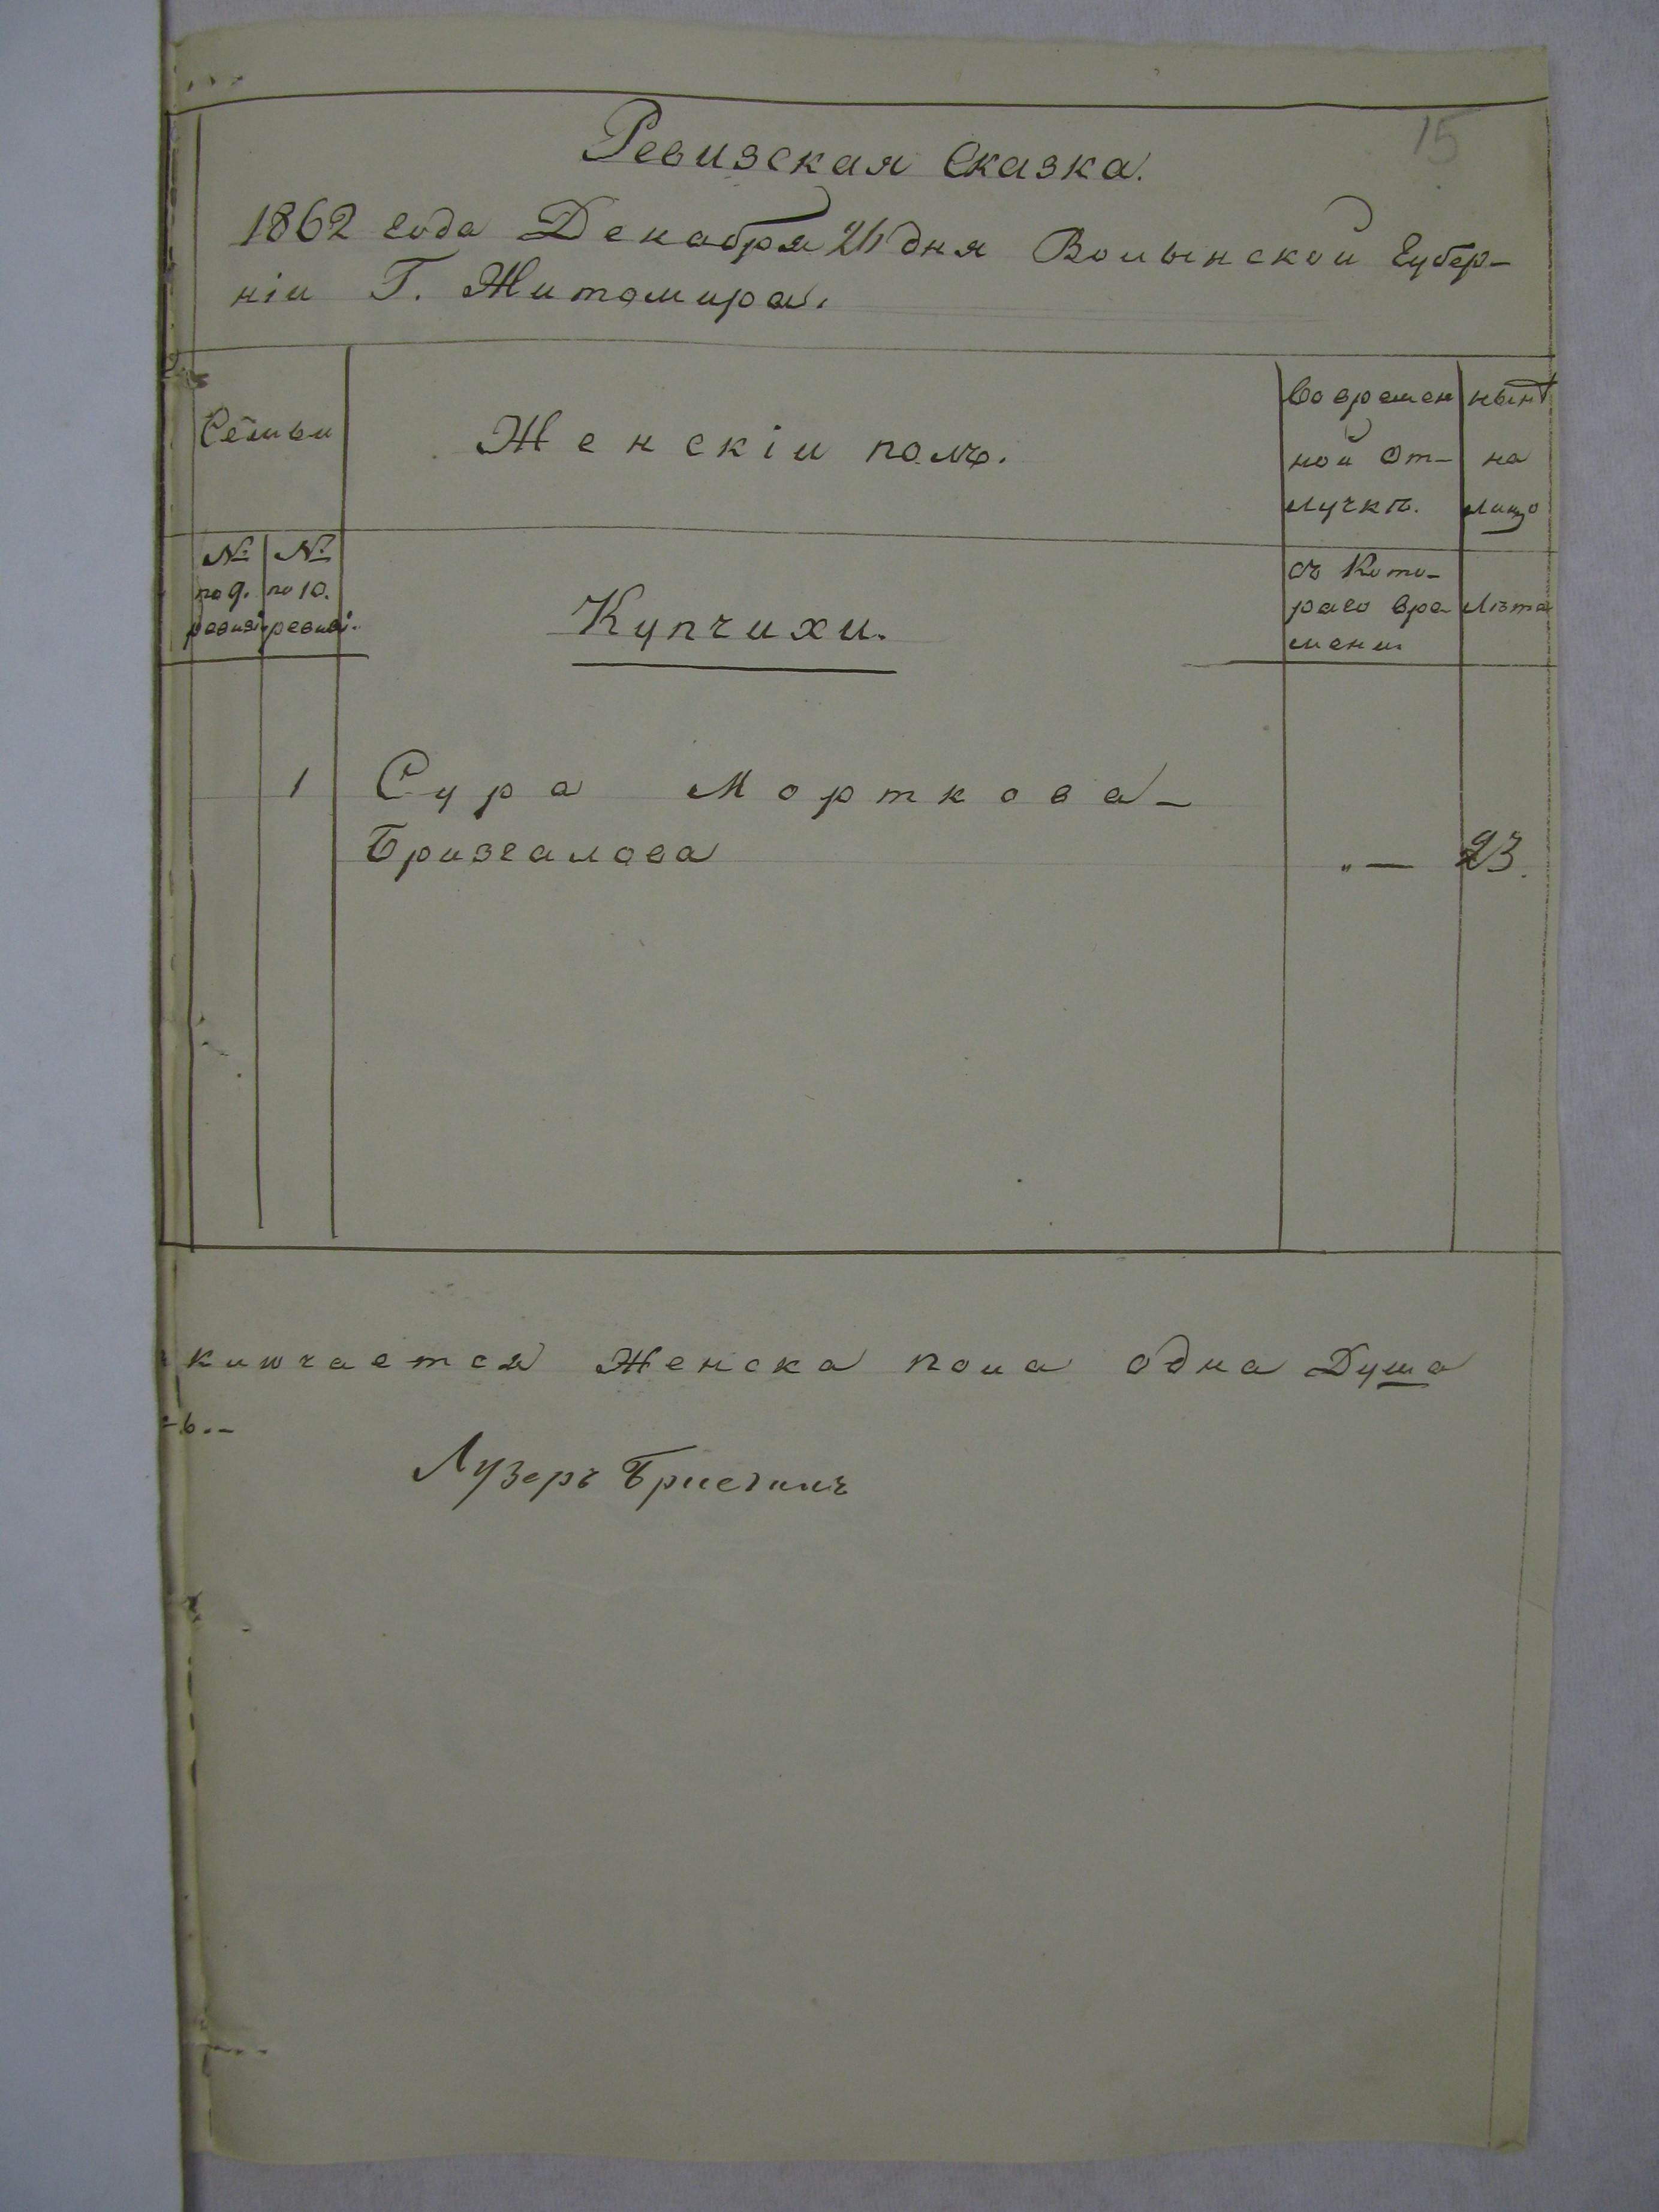 15
Ревизская Сказка.
1862 года Декабря 26 дня Волынской Губер-
ніи Г. Житомира.
Семьи
Женскіи полъ.
Во времен
ной От-
лучкѣ.
нынѣ
на
лицо
№ по 9. ревизі.
№ по 10. ревизі.
Купчихи.
съ Кото-
раго вре
мени.
Лѣта
1 Сура Морткова-
Бризгалова „— 23.
ключается Женска пола одна Душа
Лузеръ